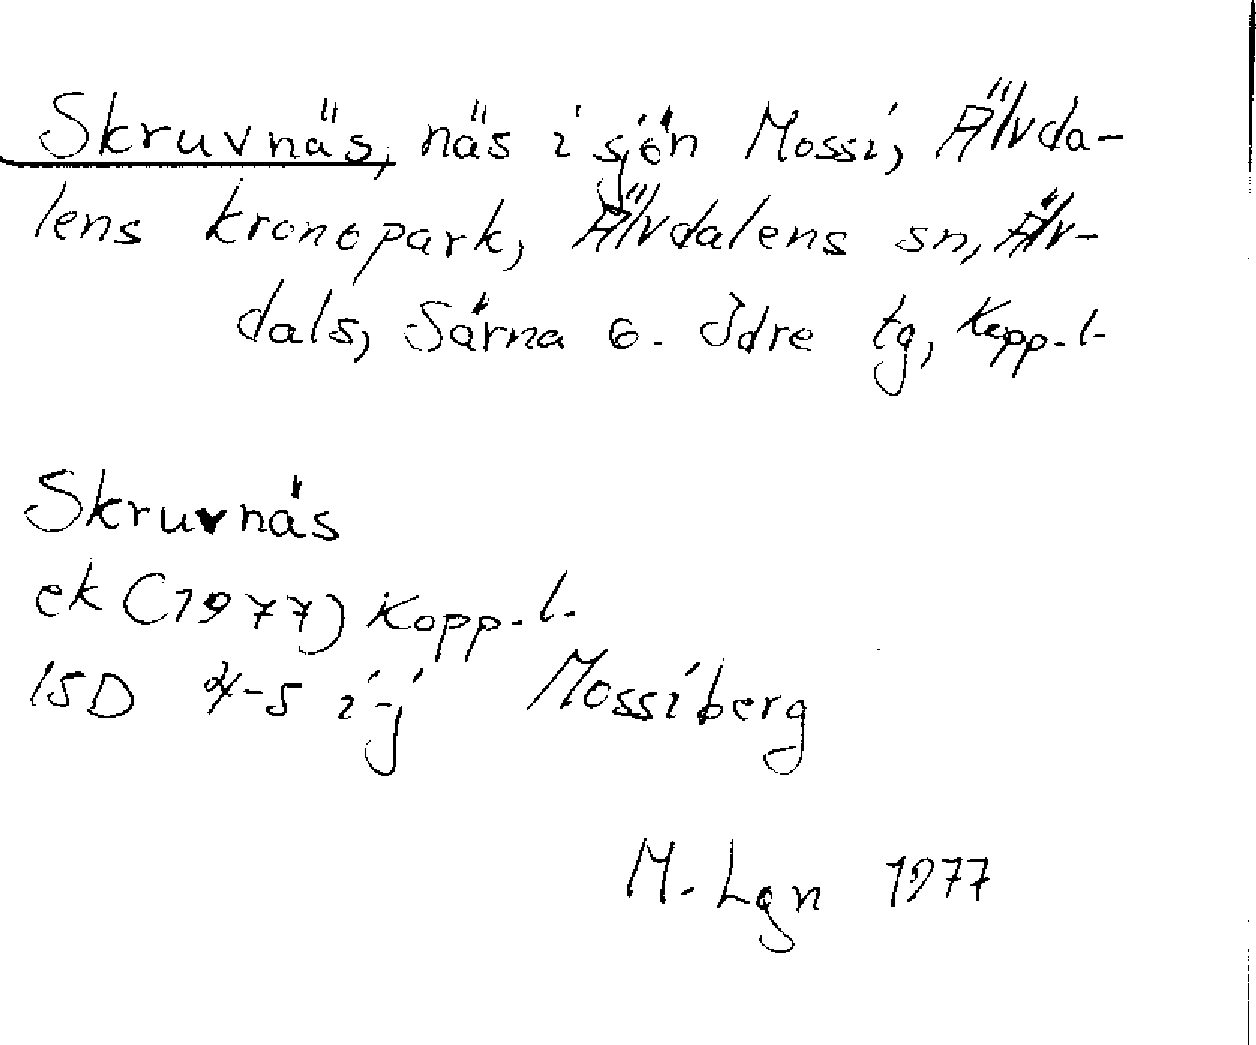 Skruvnäs, näs i sjön Mossi, Älvda-
lens kronopark, Älvdalens sn, Älv-
dals, Särna o. Idre tg, Kopp.l.
Skruvnäs
ek (1977) Kopp.l.
15D 4-5 i-j Mossiberg
M. Lgn 1977